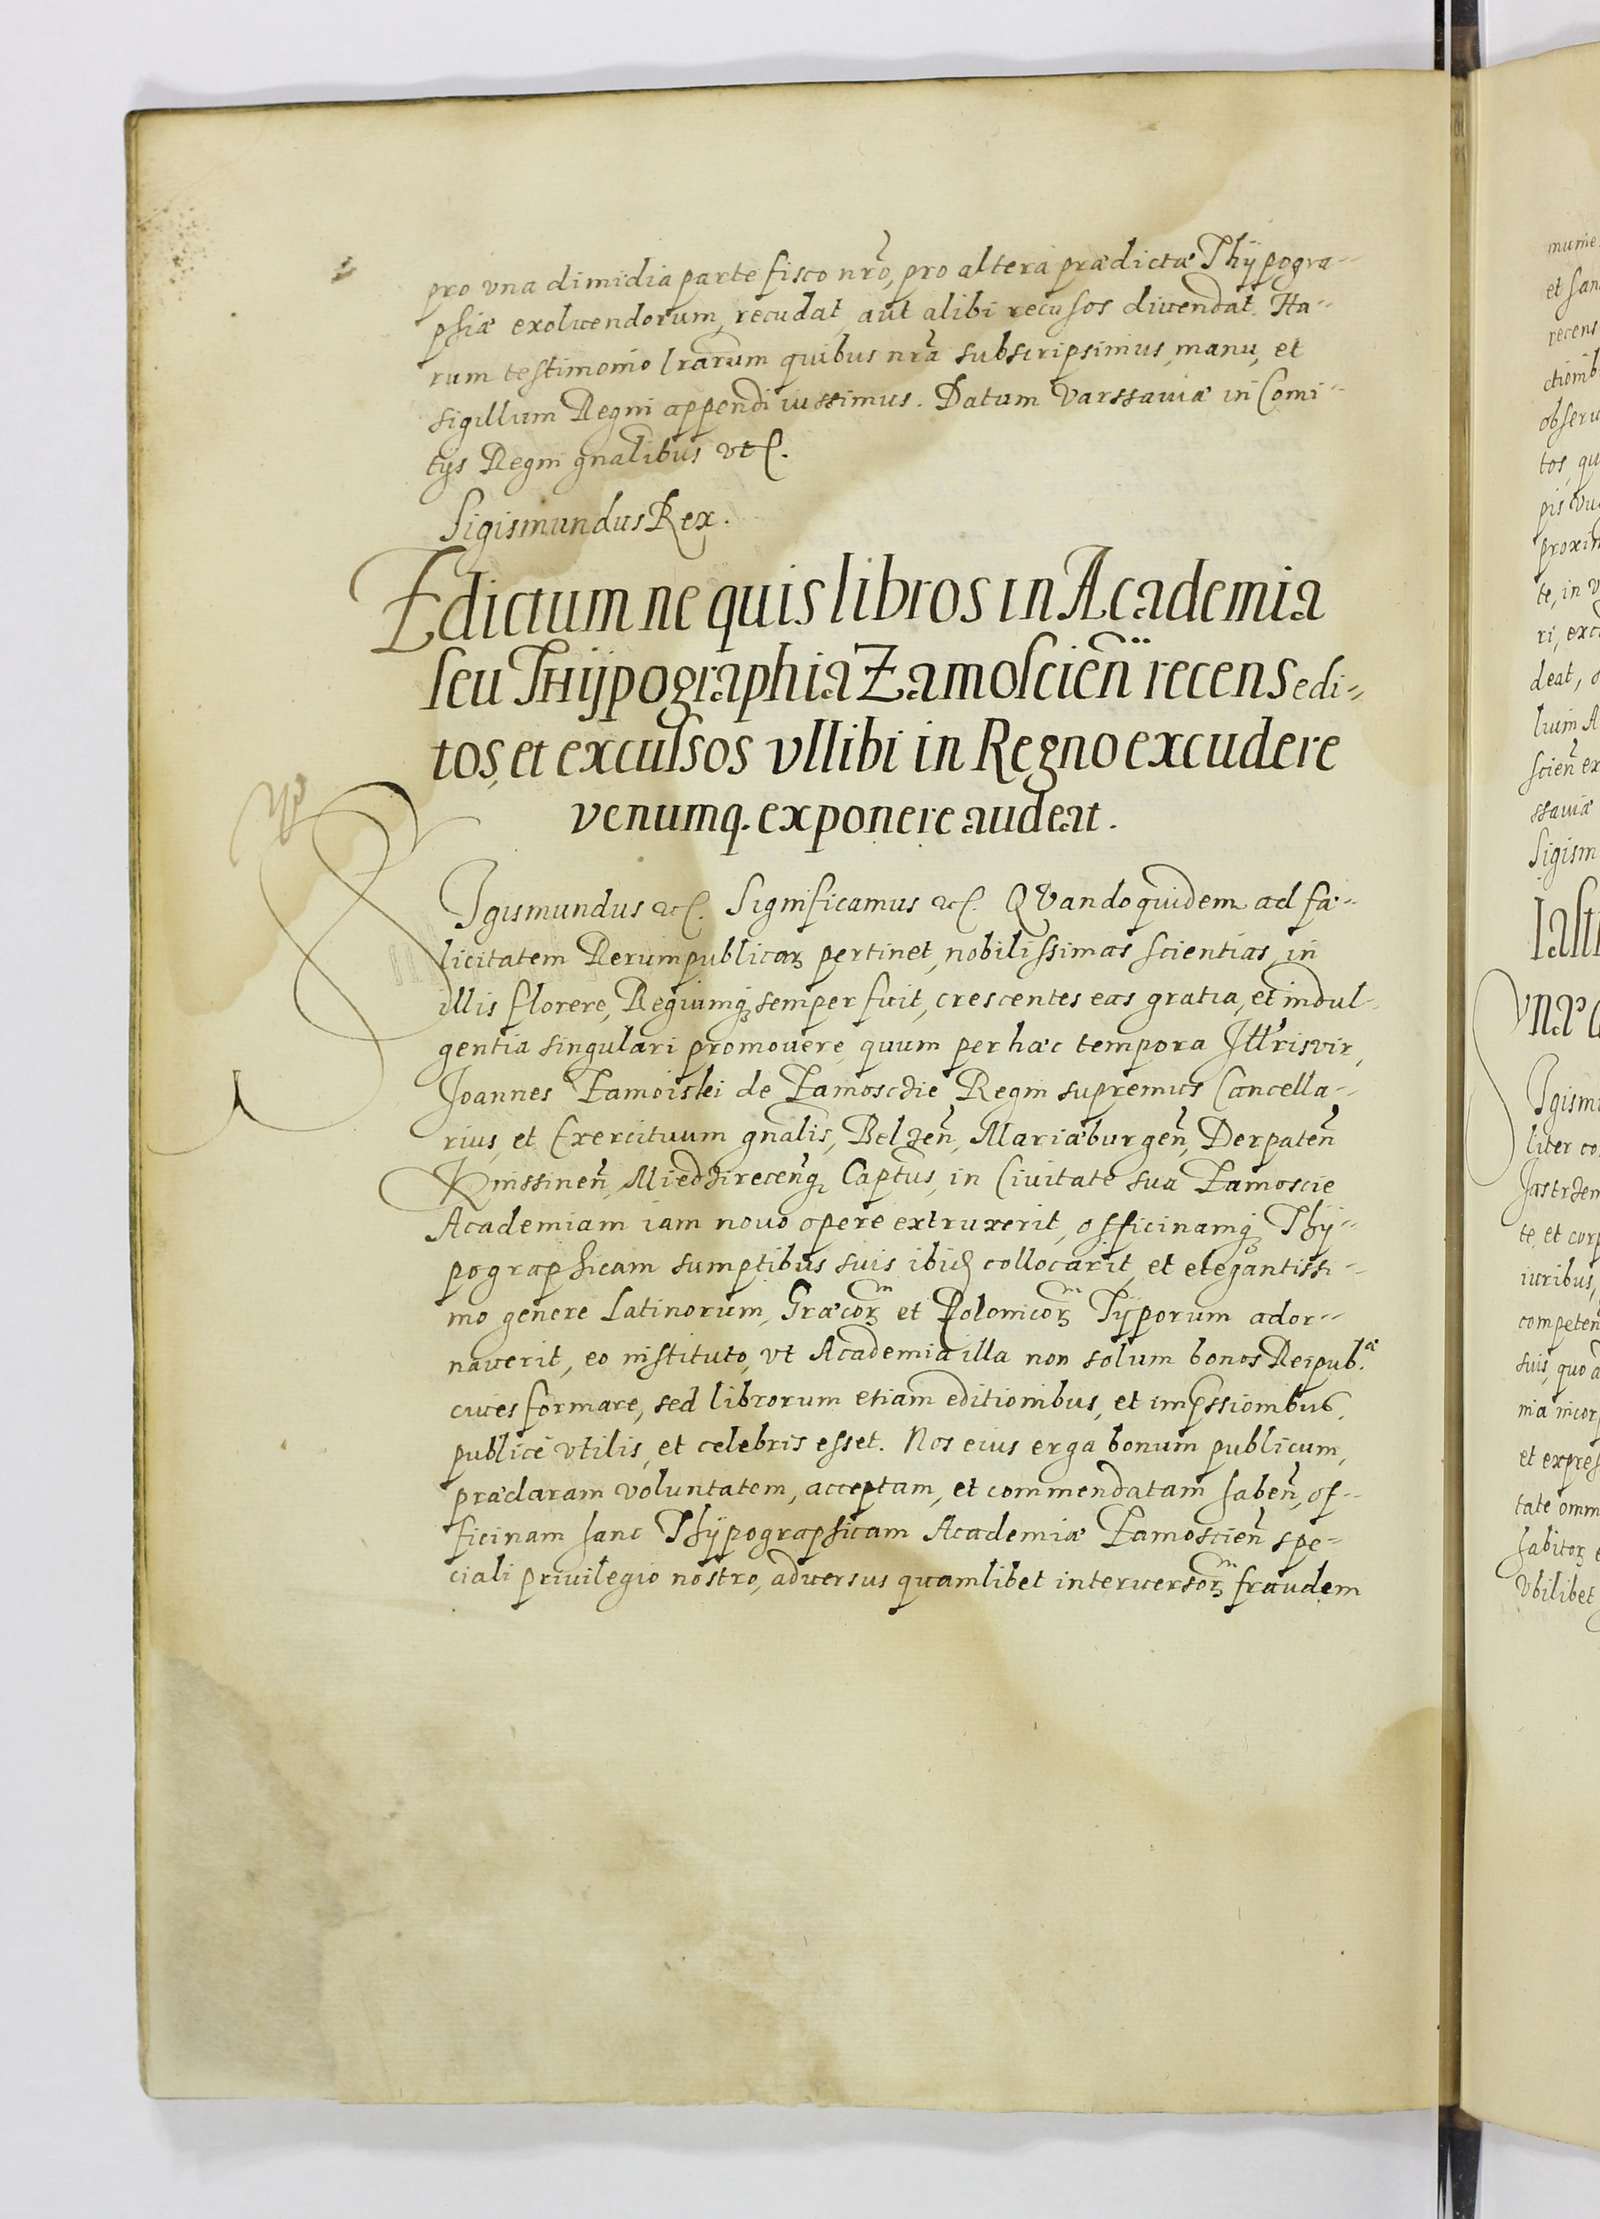 pro vna dimidia parte fisco nr̃o, pro altera prædictæ Thÿpogra-
phiæ exoluendorum, recudat, aut alibi recusos diuendat. Ha-
rum testimonio l̃rarum quibus nr̃a subscripsimus, manu, et
sigillum Regni appendi iussimus. Datum Varssauiæ in Comi-
tÿs Regni gñalibus vt
Sigismundus Rex.
Edictum ne quis libros in Academia
seu Thÿpographia Zamoscień recens edi-
tos, et excussos vllibi in Regno excudere
venumq. exponere audeat.
Sigismundus etc. Significamus etc. QVandoquidem ad fæ-
licitatem Rerumpublicaꝝ pertinet, nobilissimas scientias, in
illis florere, Regiumqꝫ semper fuit, crescentes eas gratia, et indul-
gentia singulari promouere, quum per hæc tempora Ill'ris vir,
Joannes Zamoiski de Zamosczie Regni supremus Cancella-
rius, et Exercituum gñalis, Belzeñ, Mariæburgeñ, Derpateñ
Knissineñ, Miedzireceñqꝫ Capt̃us, in Ciuitate sua Zamoscie
Academiam iam nouo opere extruxerit, officinamqꝫ Thÿ-
pographicam sumptibus suis ibid collocarit, et elegantissi-
mo genere Latinorum, Græcoꝝᵐ et Polonicoꝝᵐ Tÿporum ador-
nauerit, eo instituto, vt Academia illa non solum bonos Reipub.æ
ciues formare, sed librorum etiam editionibus, et imp̃ssionibus,
publice vtilis, et celebris esset. Nos eius erga bonum publicum,
præclaram voluntatem, acceptam, et commendatam habeñ, of-
ficinam hanc Thÿpographicam Academiæ Zamoscieñ spe-
ciali priuilegio nostro, aduersus quamlibet interuersoꝝᵐ fraudem
et san
recens
obseru
tos, qu
proxim
te, in v
ri, exc
deat, o
scień ex
ssauiæ
Sigism
Iast
liter co
te, et corp
iuribus,
competen
suis, quo a
nia incorp
et expres
tate omni
habitoꝝ
Vbilibet